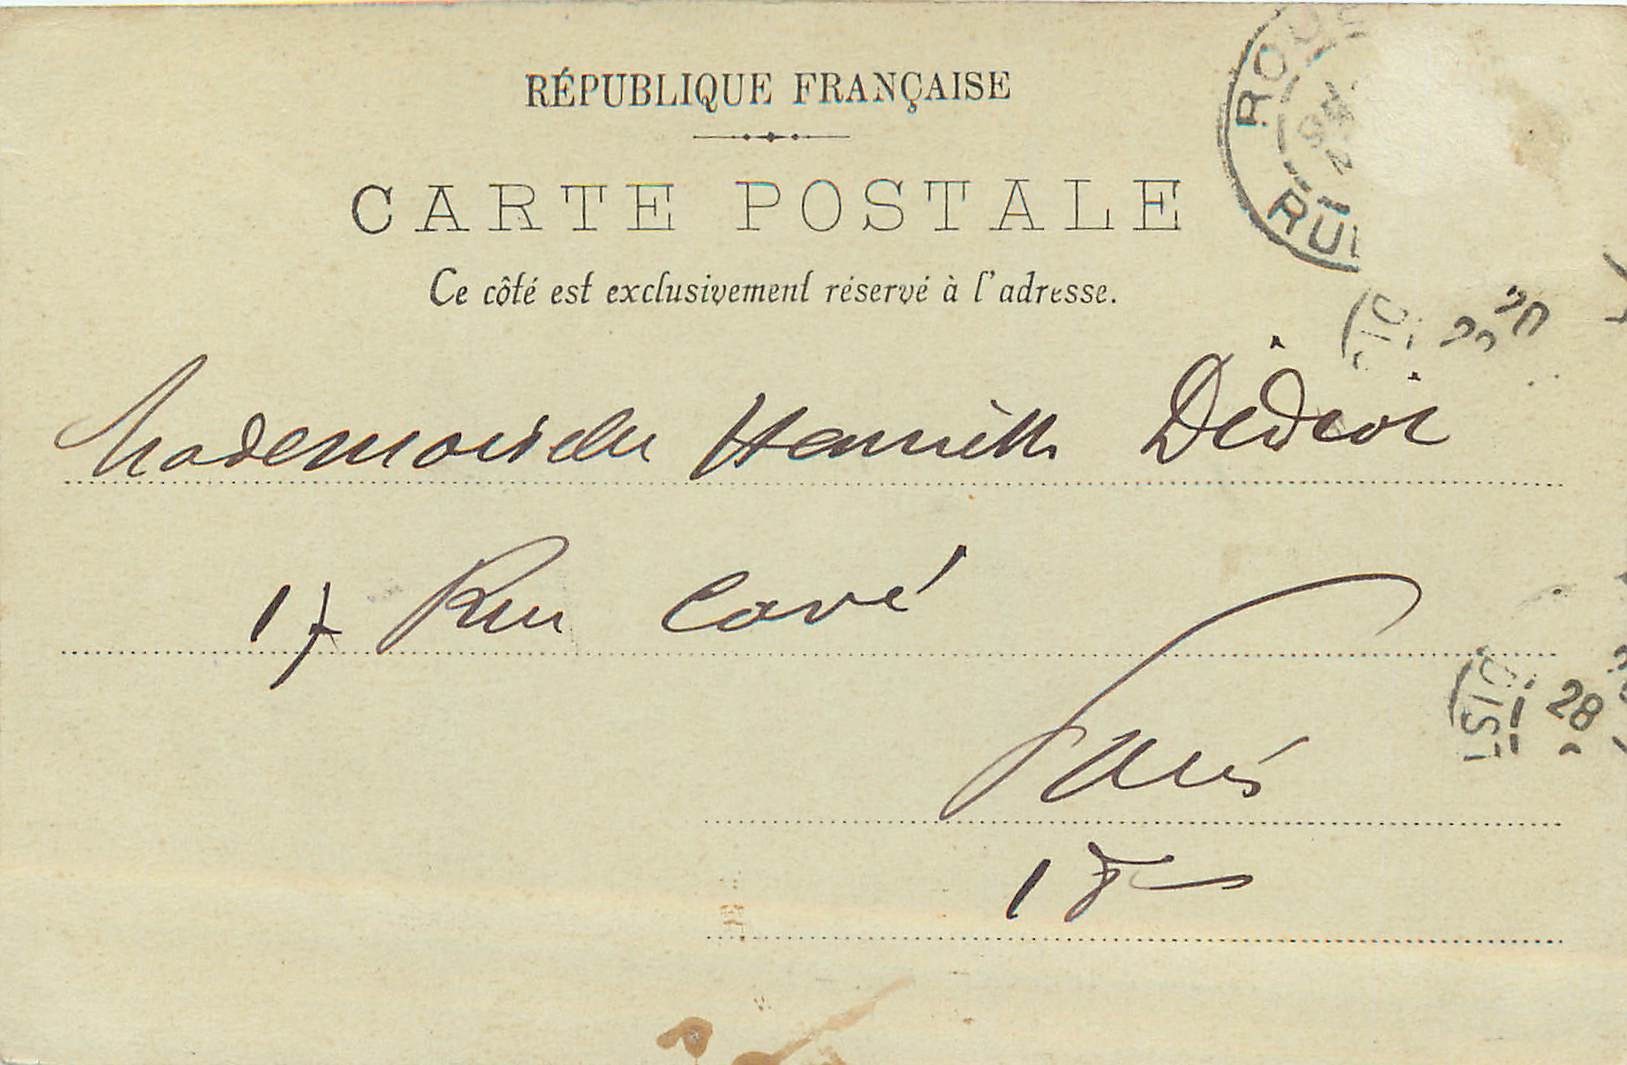 RÉPUBLIQUE FRANÇAISE
CARTE POSTALE
Ce côté est exclusivement réservé à l'adresse.
ROUE
RU
Mademoiselle Henriette
17 Rue Cavé
DIST
28
Paris
18